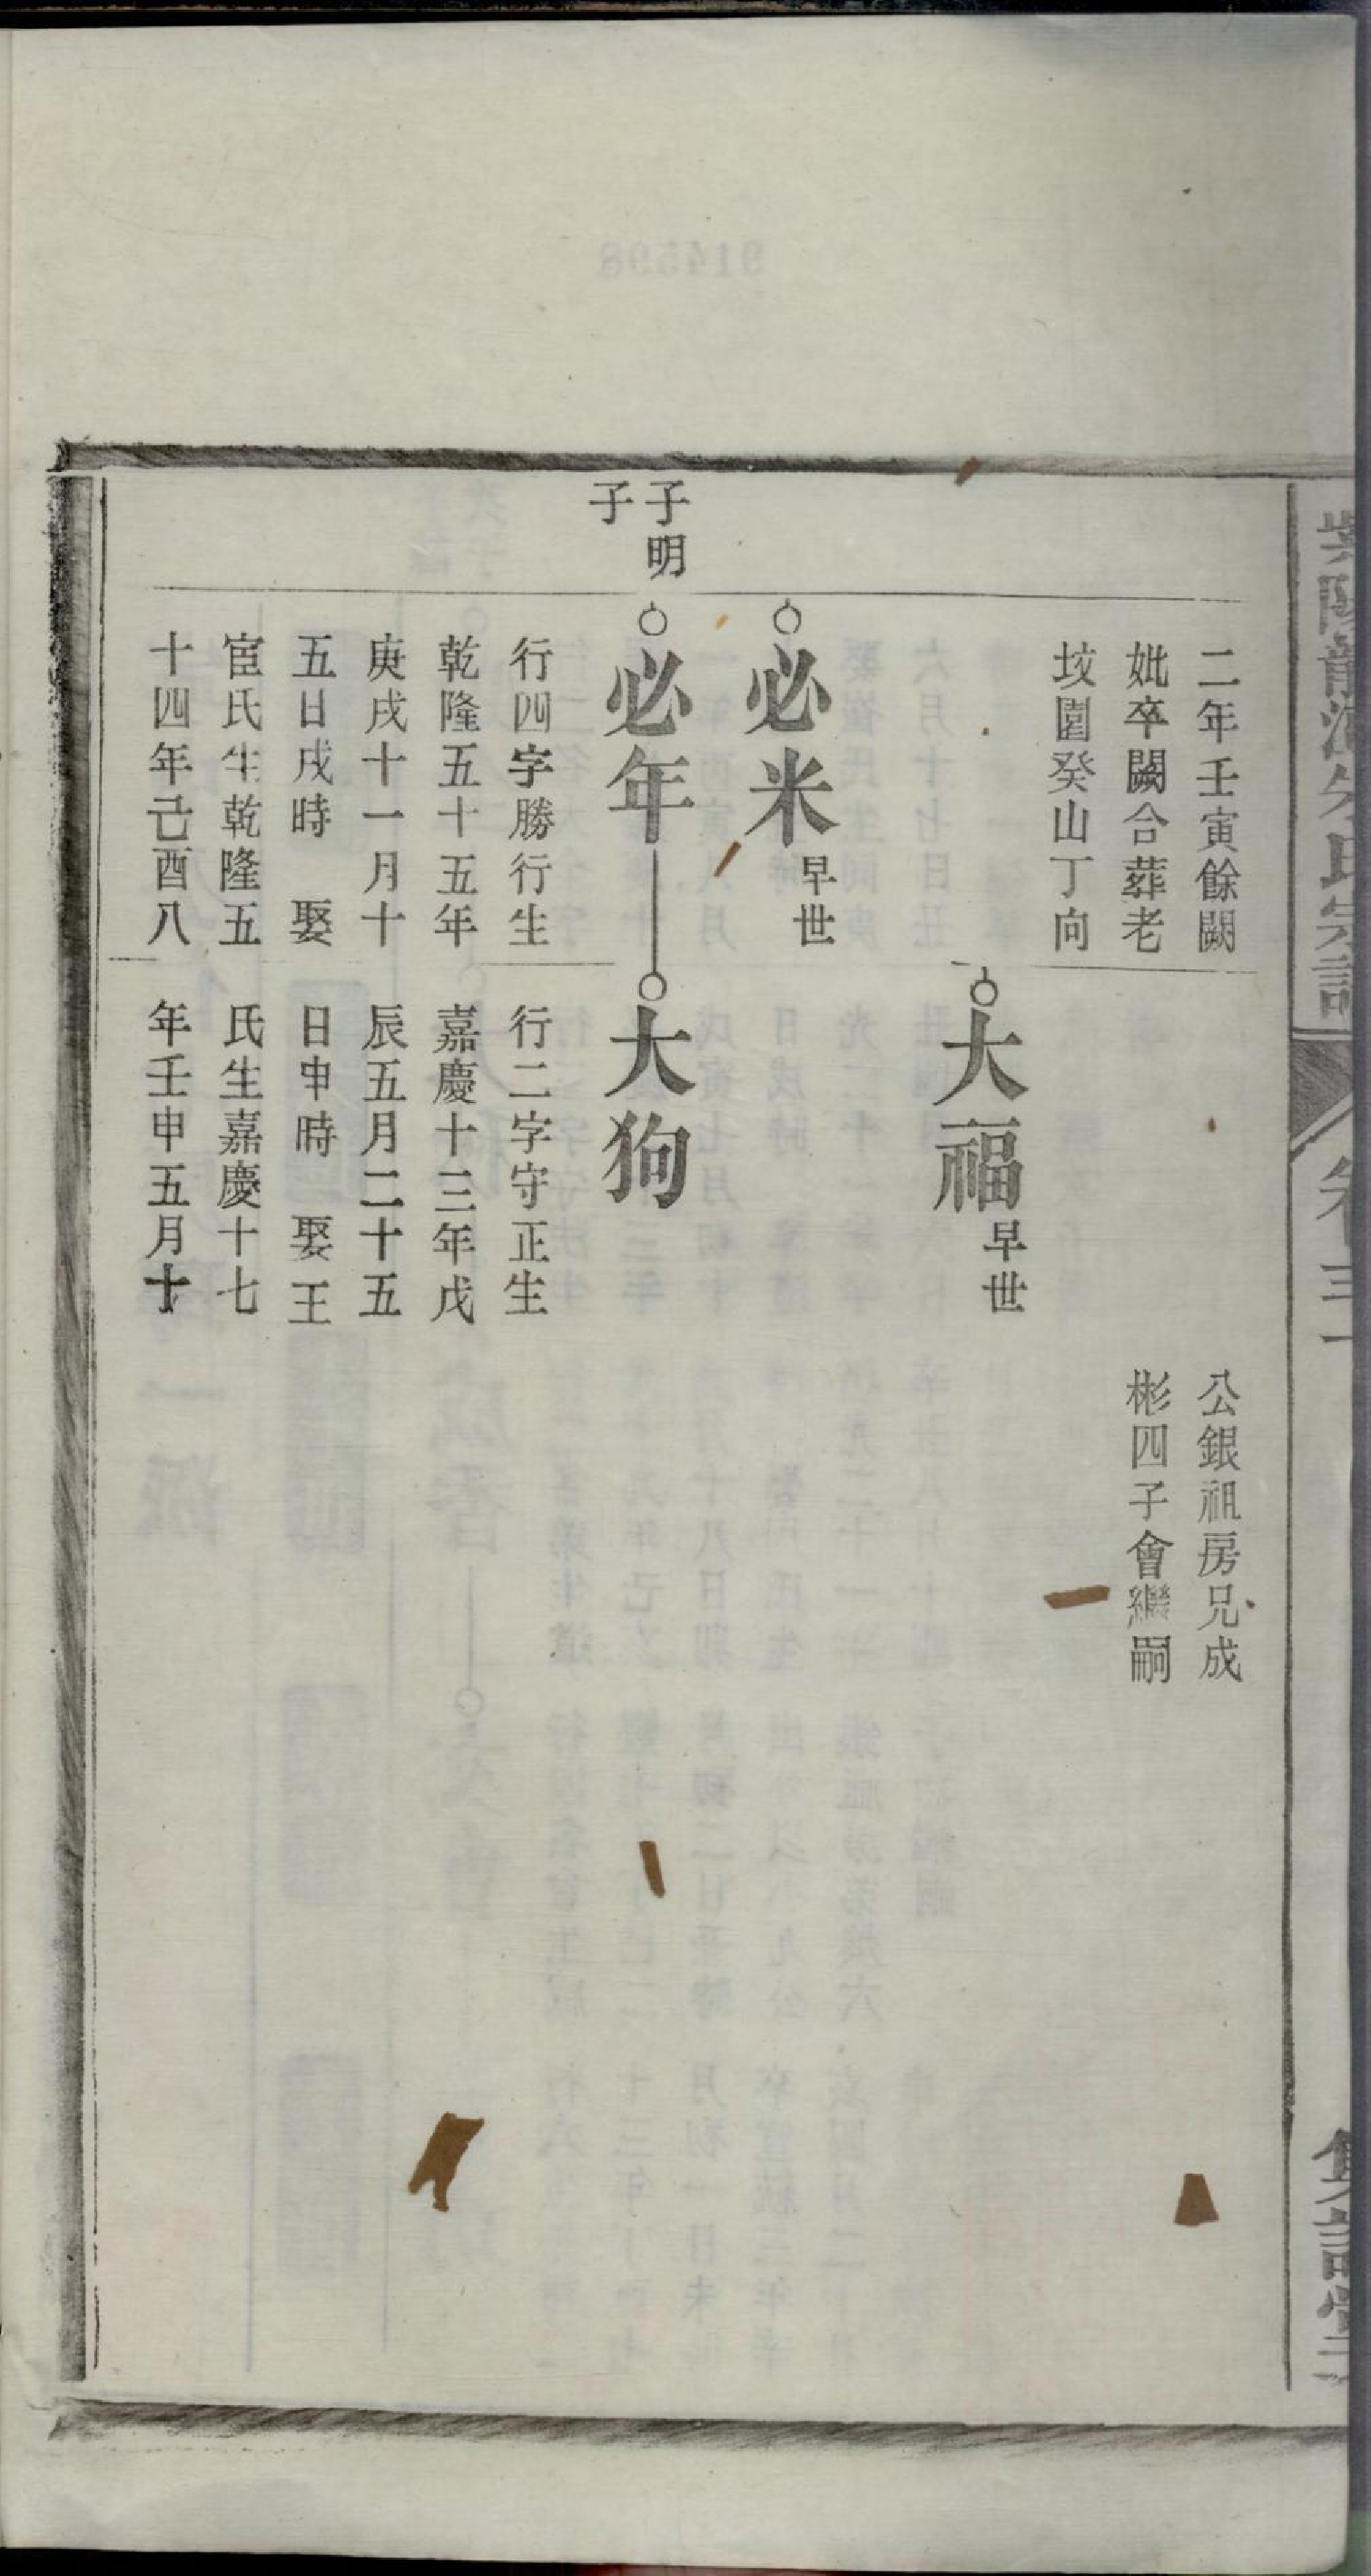 二年壬寅餘闕
妣卒闕合葬老
㘭園癸山丁向
公銀祖房兄成
彬四子會繼嗣
大福
早世
必米
早世
子明
子
必年
行四字勝行生
乾隆五十五年
庚戌十一月十
五日戌時 娶
宦氏生乾隆五
十四年己酉八
大狗
行二字守正生
嘉慶十三年戊
辰五月二十五
日申時 娶王
氏生嘉慶十七
年壬申五月十